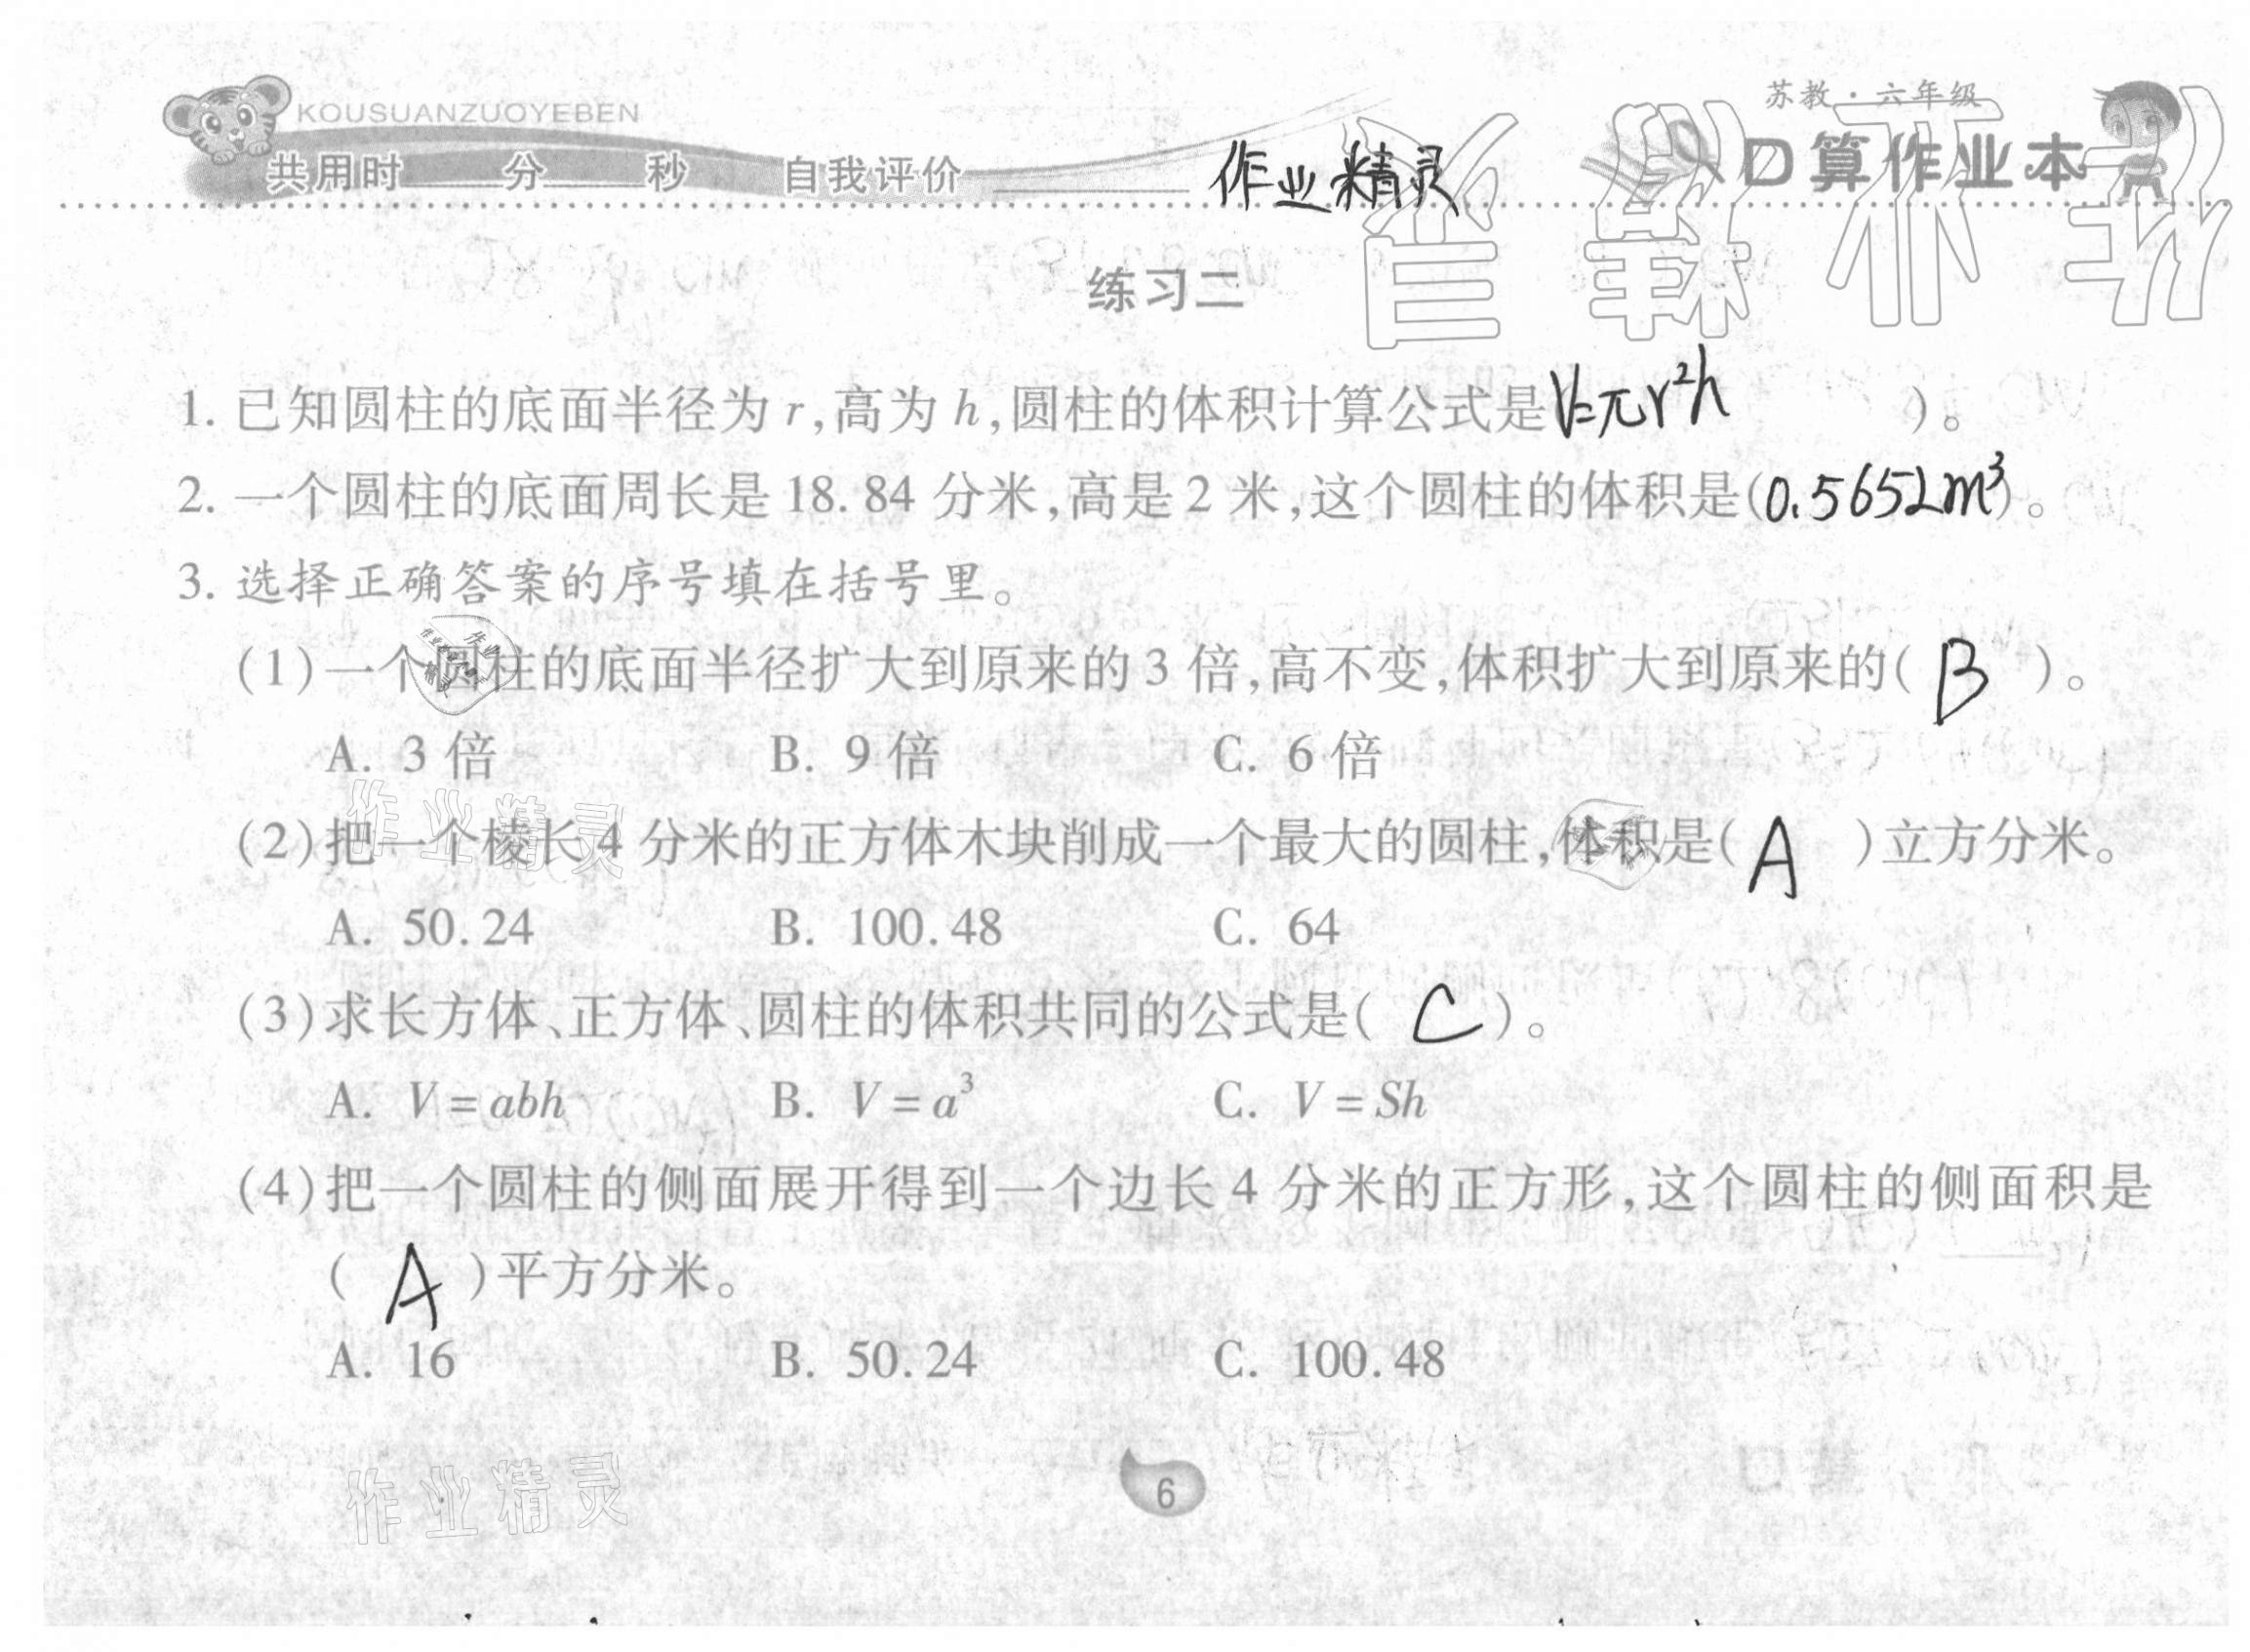 KOUSUANZUOYEBEN
苏教·六年级
共用时____分____秒 自我评价________ 作业精灵
口算作业本
练习二
1. 已知圆柱的底面半径为 r,高为 h,圆柱的体积计算公式是V=πr²h )。
2. 一个圆柱的底面周长是 18.84 分米,高是 2 米,这个圆柱的体积是(0.5652m³)。
3. 选择正确答案的序号填在括号里。
(1)一个圆柱的底面半径扩大到原来的 3 倍,高不变,体积扩大到原来的( B )。
A. 3 倍 B. 9 倍 C. 6 倍
(2)把一个棱长 4 分米的正方体木块削成一个最大的圆柱,体积是( A )立方分米。
A. 50.24 B. 100.48 C. 64
(3)求长方体、正方体、圆柱的体积共同的公式是( C )。
A. V=abh B. V=a³ C. V=Sh
(4)把一个圆柱的侧面展开得到一个边长 4 分米的正方形,这个圆柱的侧面积是
( A )平方分米。
A. 16 B. 50.24 C. 100.48
作业精灵
作业精灵
6